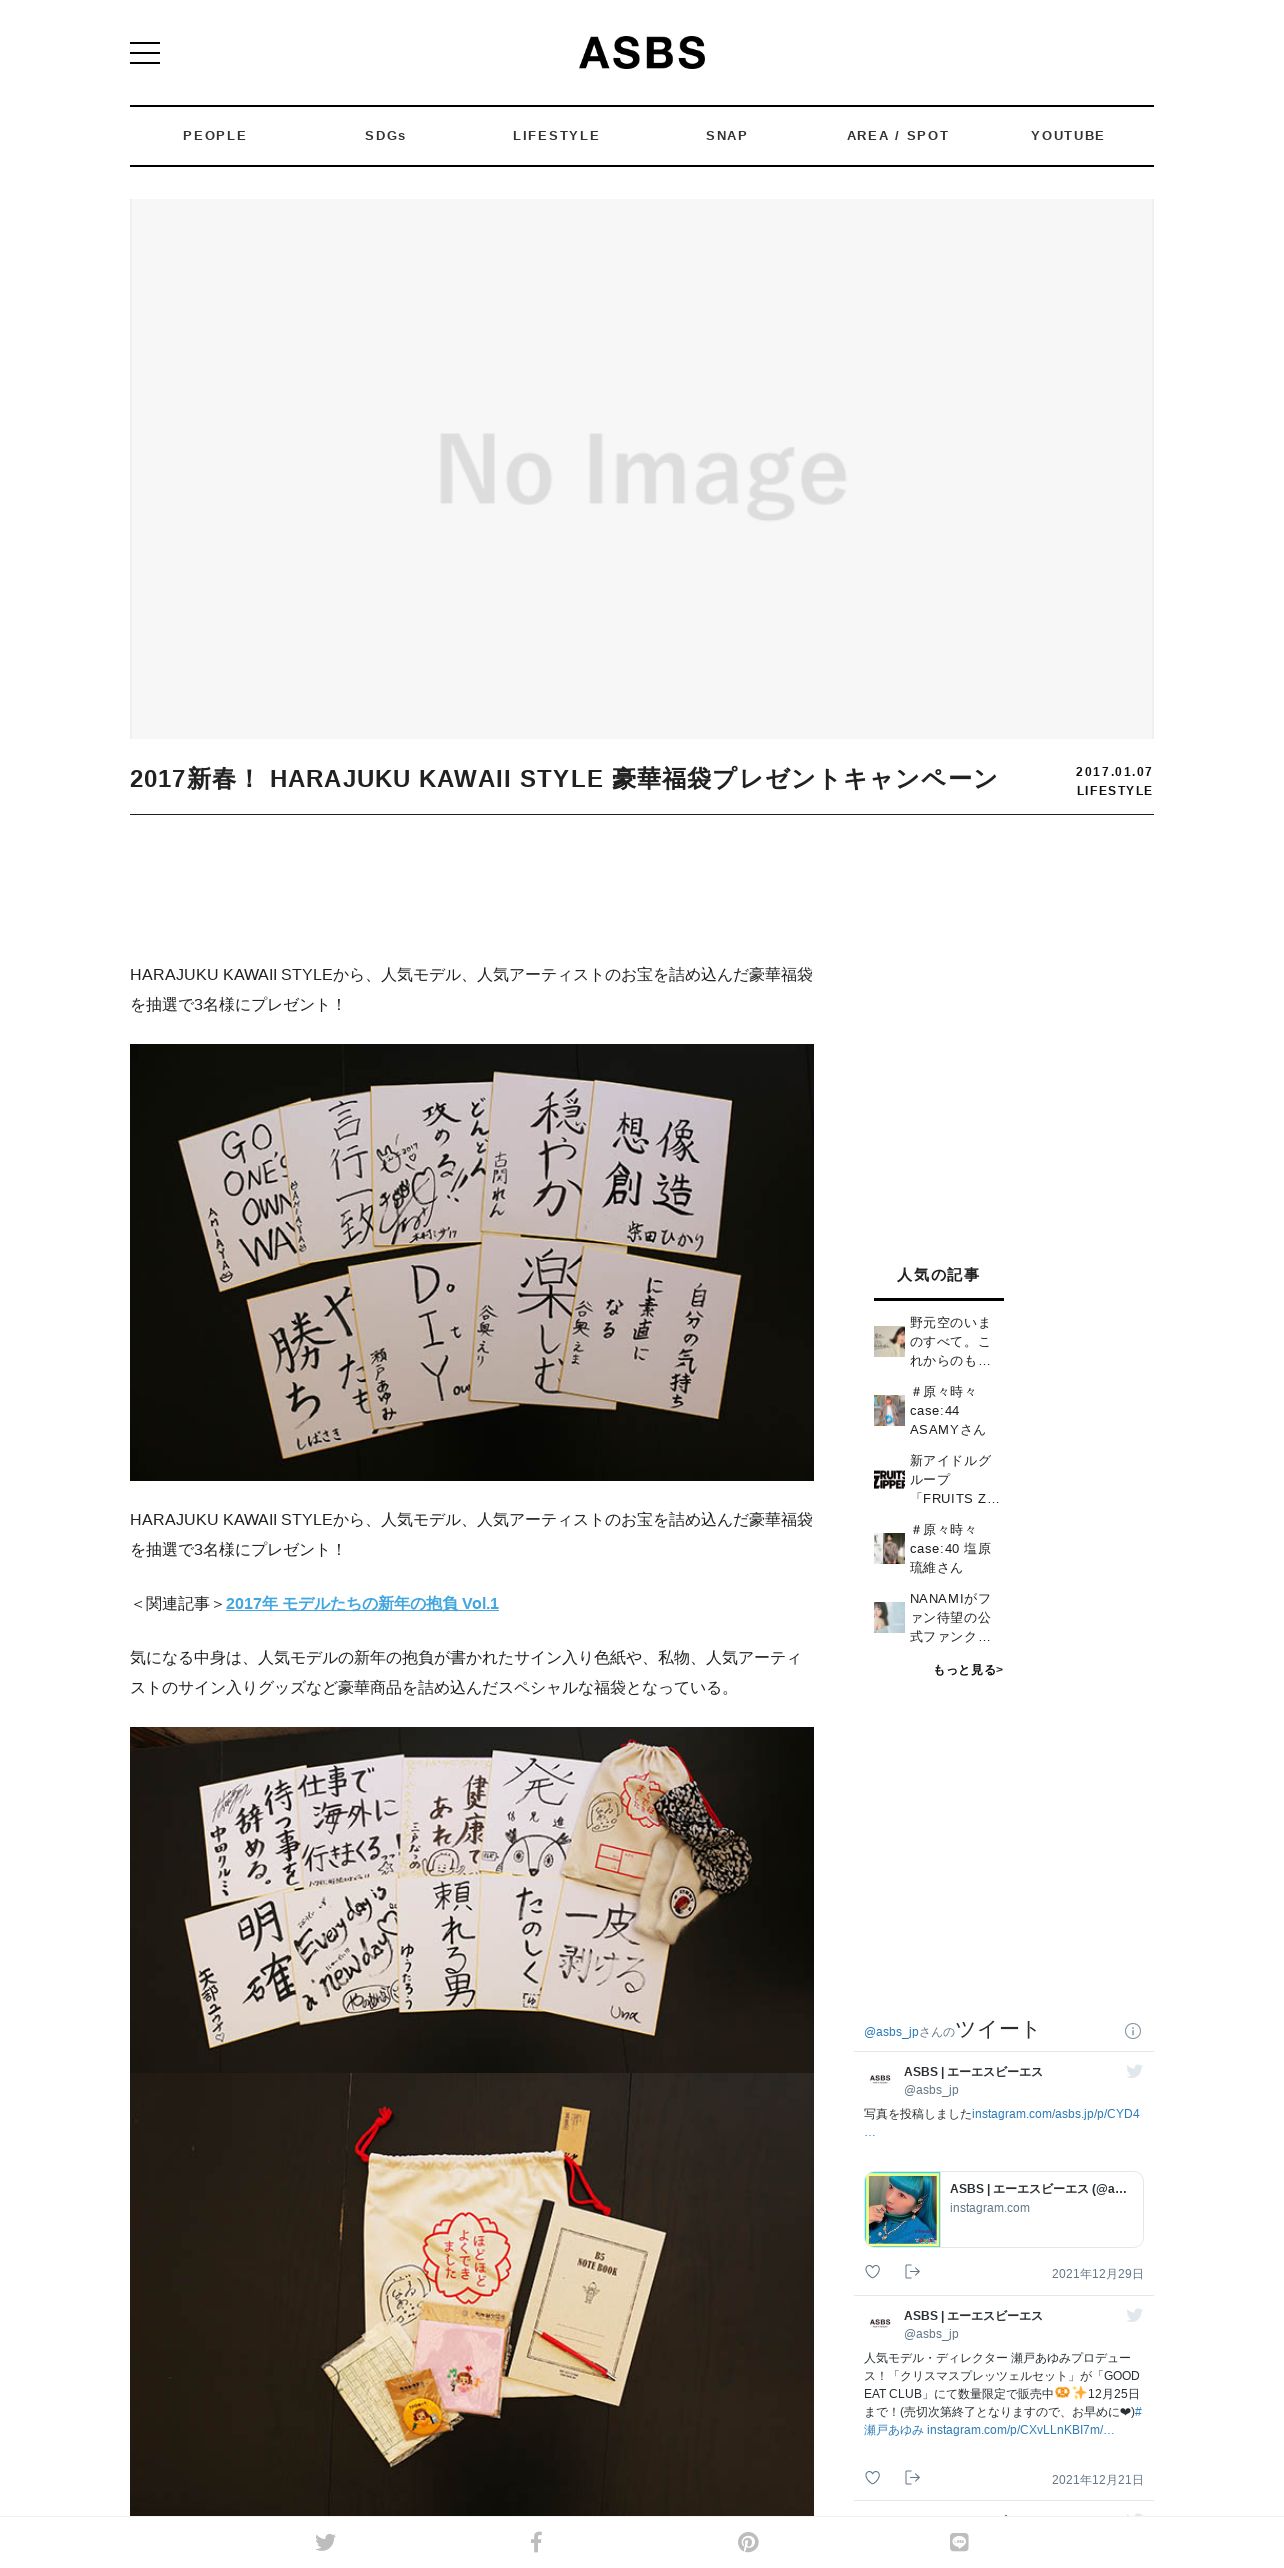 ASBS
PEOPLE
SDGs
LIFESTYLE
SNAP
AREA / SPOT
YOUTUBE
No Image
2017新春！ HARAJUKU KAWAII STYLE 豪華福袋プレゼントキャンペーン
2017.01.07
LIFESTYLE
HARAJUKU KAWAII STYLEから、人気モデル、人気アーティストのお宝を詰め込んだ豪華福袋
を抽選で3名様にプレゼント！
GO
ONE'S
OWN
WAY
AMIAYA
言行一致
AMIAYA
どんどん
攻める!!
穏やか
古閑れん
想像
創造
柴田ひかり
やたも
勝ち
しばさき
D.
I
Y
瀬戸あゆみ
楽しむ
谷奥えり
自分の気持ち
に素直に
なる
谷奥えま
HARAJUKU KAWAII STYLEから、人気モデル、人気アーティストのお宝を詰め込んだ豪華福袋
を抽選で3名様にプレゼント！
＜関連記事＞2017年 モデルたちの新年の抱負 Vol.1
気になる中身は、人気モデルの新年の抱負が書かれたサイン入り色紙や、私物、人気アーティ
ストのサイン入りグッズなど豪華商品を詰め込んだスペシャルな福袋となっている。
待つ事を
辞める。
中田クルミ
仕事で
海外に
行きまくる
健康で
あれ
発
明確
矢部ユウナ
Every day is
a new day
頼れる男
ゆうたろう
たのしく
一皮
剥ける
Una
ほどほど
よくでき
ました
B5
NOTE BOOK
人気の記事
野元空のいま
のすべて。こ
れからのも…
＃原々時々
case:44
ASAMYさん
FRUITS
ZIPPER
新アイドルグ
ループ
「FRUITS Z…
＃原々時々
case:40 塩原
琉維さん
NANAMIがフ
ァン待望の公
式ファンク…
もっと見る>
@asbs_jpさんのツイート
ASBS
ASBS | エーエスビーエス
@asbs_jp
写真を投稿しましたinstagram.com/asbs.jp/p/CYD4
…
ASBS | エーエスビーエス (@a…
instagram.com
2021年12月29日
ASBS
ASBS | エーエスビーエス
@asbs_jp
人気モデル・ディレクター 瀬戸あゆみプロデュー
ス！「クリスマスプレッツェルセット」が「GOOD
EAT CLUB」にて数量限定で販売中🥨✨12月25日
まで！(売切次第終了となりますので、お早めに❤)#
瀬戸あゆみ instagram.com/p/CXvLLnKBI7m/…
2021年12月21日